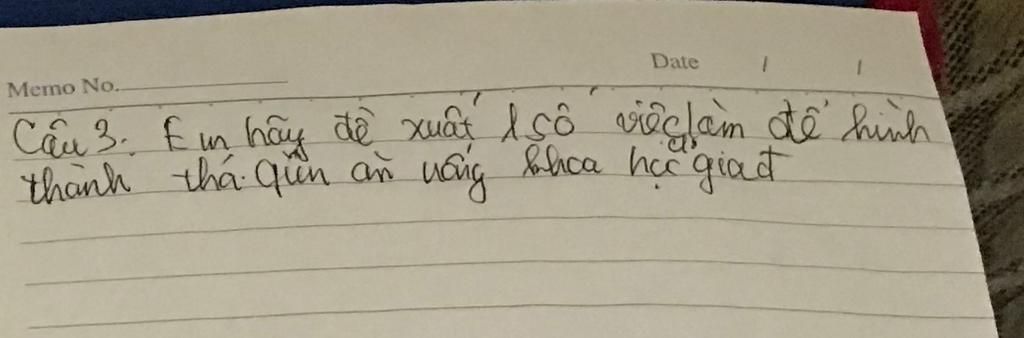 Memo No. Date / /
Câu 3: Em hãy đề xuất 1 số việc làm để hình
thành thá. quen ăn uống khoa học giađ